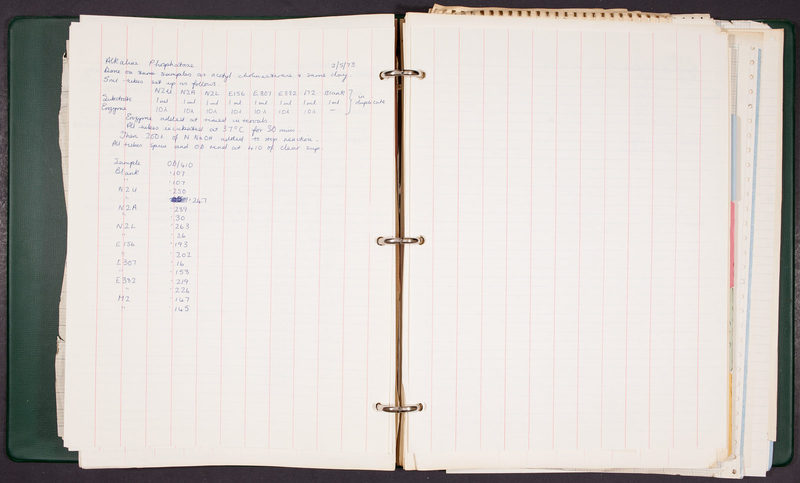 Alkaline Phosphatase 2/5/73
Done on same samples as acetyl cholinesterase & same day.
5ml tubes set up as follows.
N2U N2A N2L E156 E307 E332 M2 Blank
Substrate 1ml 1ml 1ml 1ml 1ml 1ml 1ml 1ml } in duplicate
Enzyme 10λ 10λ 10λ 10λ 10λ 10λ 10λ —
Enzyme added at timed intervals
All tubes incubated at 37°C for 30 mins
Then 200λ of N NaOH added to stop reaction.
All tubes spun and OD read at 410 of clear sup.
Sample OD/410
Blank ·107
" ·107
N2U ·250
" ·247
N2A ·239
" ·30
N2L ·263
" ·26
E156 ·193
" ·202
E307 ·16
" ·153
E332 ·219
" ·226
M2 ·147
" ·145